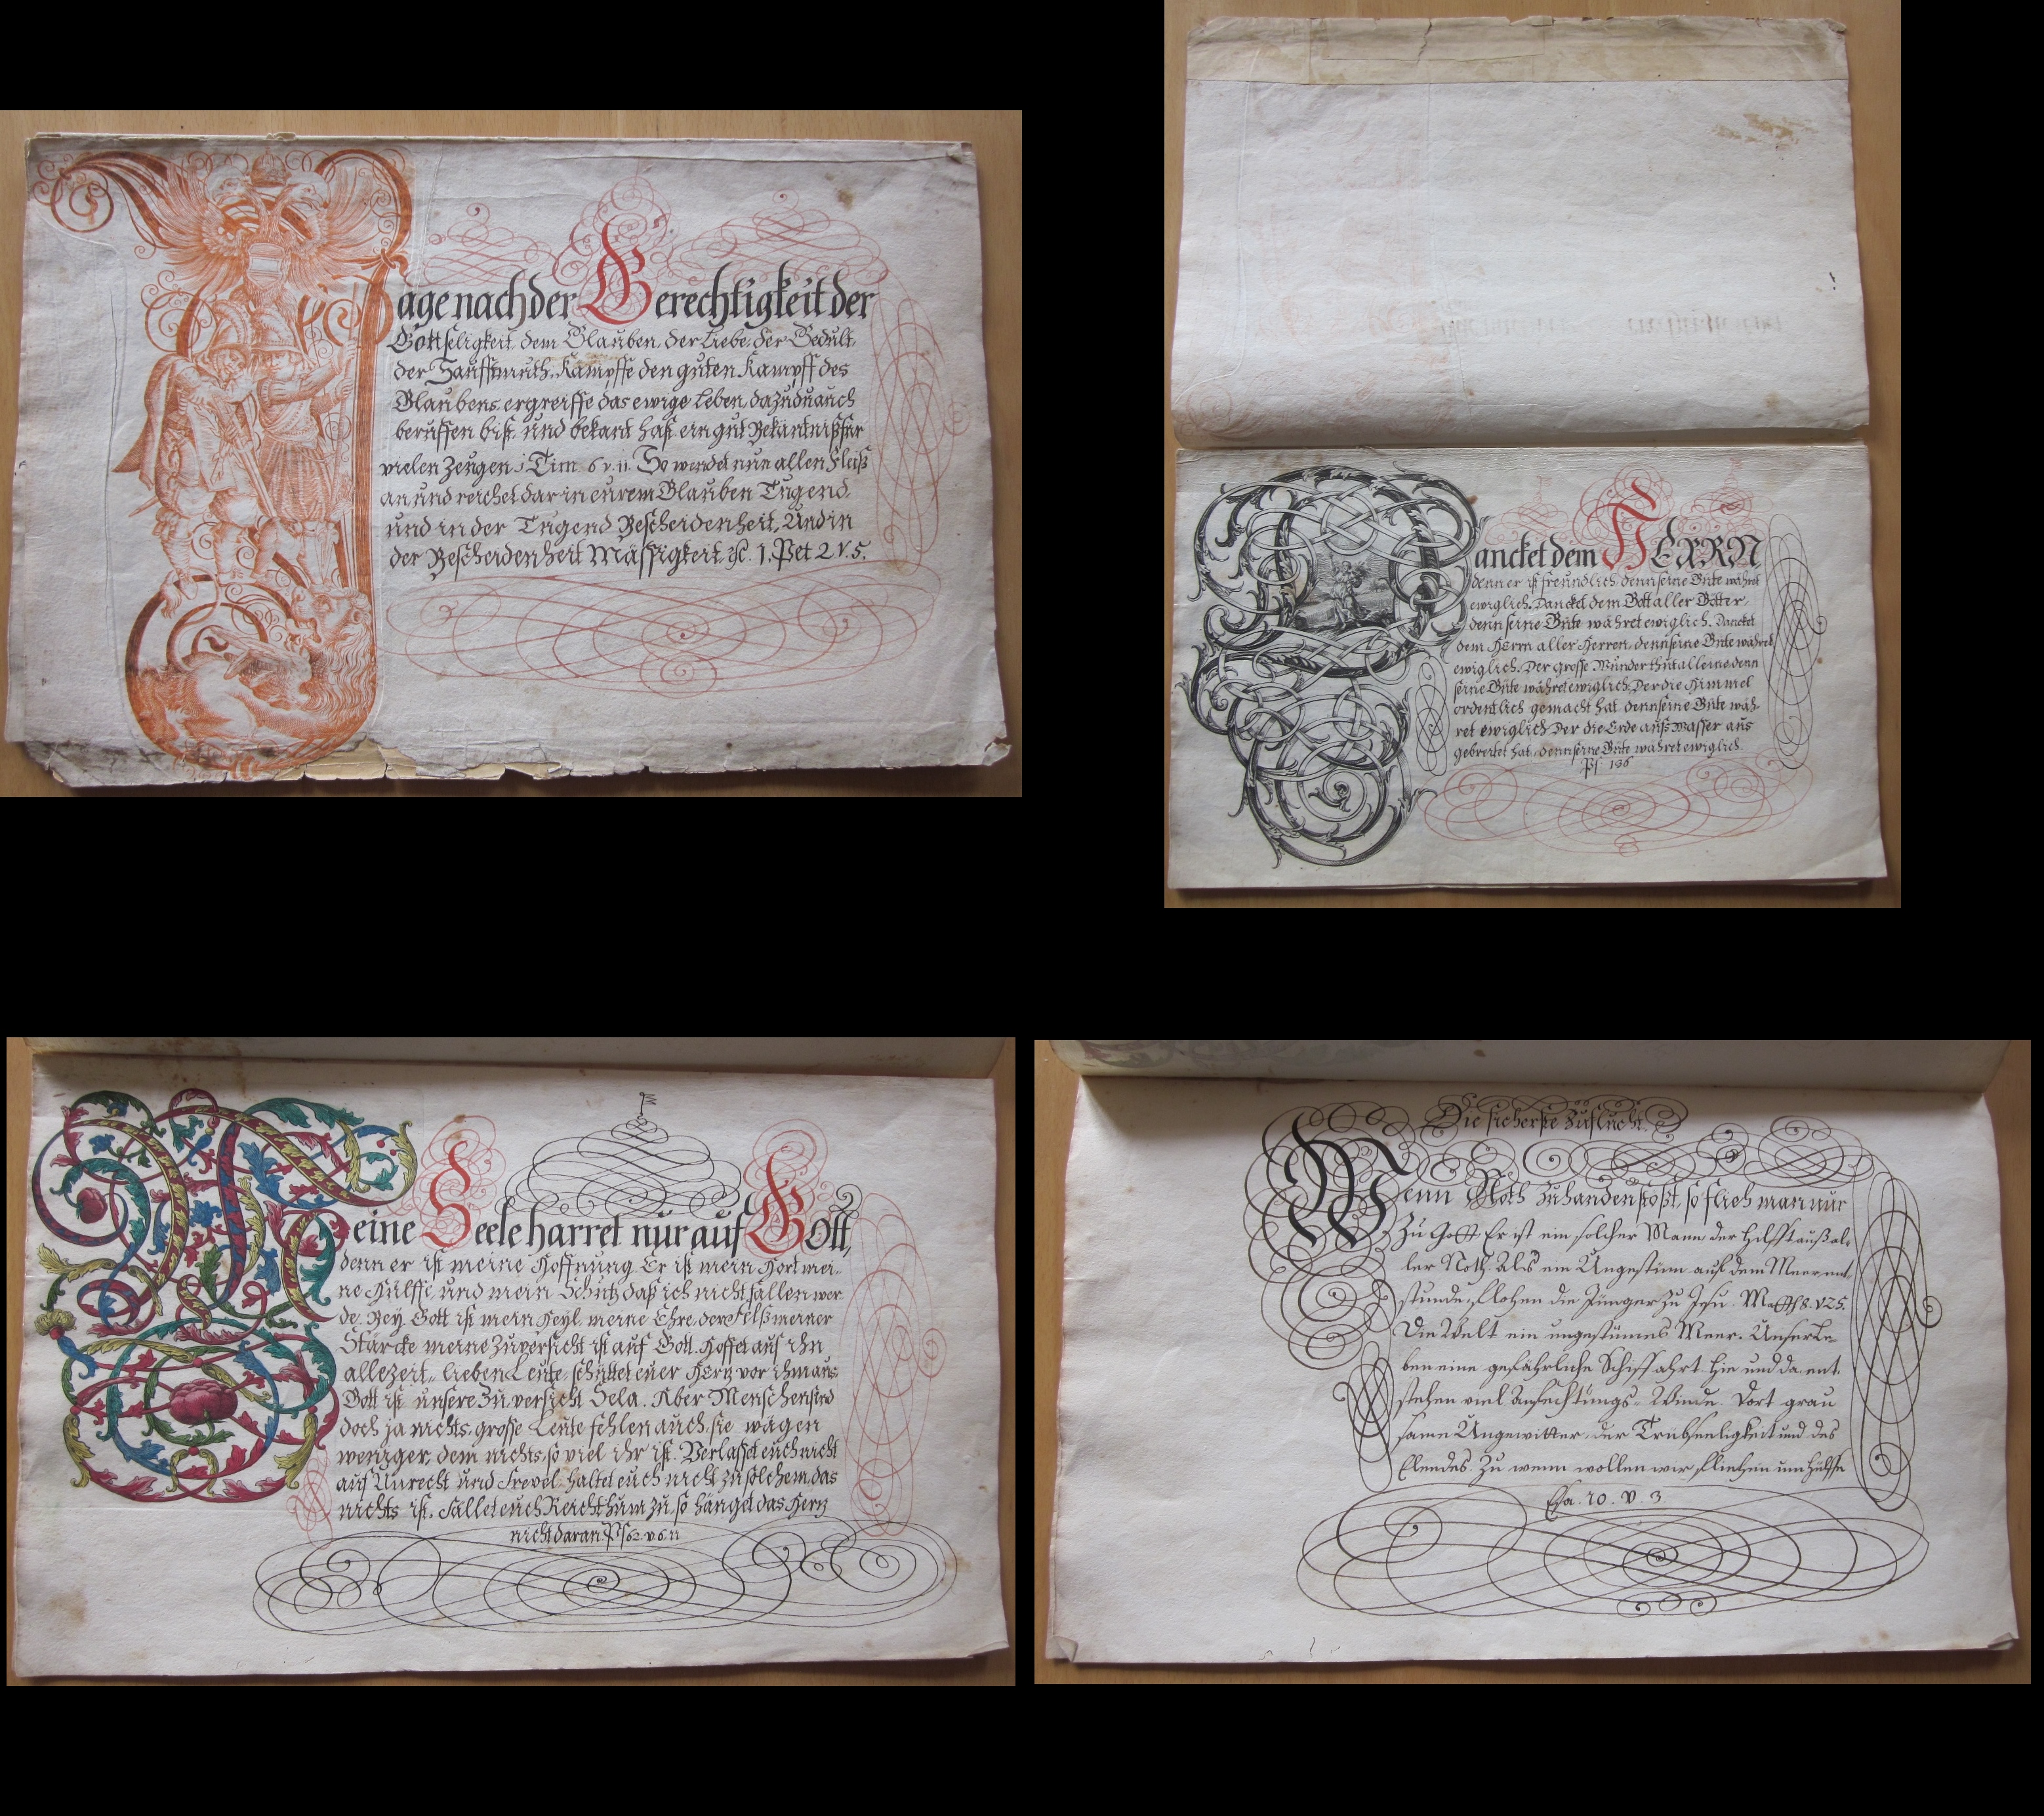 Jage nach der Gerechtigkeit der
Gottseligkeit, dem Glauben, der Liebe, der Gedult,
der Sanfftmuth, Kämpffe den guten Kampff des
Glaubens, ergreiffe das ewige Leben, dazu du auch
beruffen bist, und bekant hast ein gut Bekäntniß für
vielen Zeugen 1 Tim 6 v. 11. So wendet nun allen Fleiß
an und reichet dar in eurem Glauben Tugend,
und in der Tugend Bescheidenheit, Und in
der Bescheidenheit Mässigkeit, ec. 1. Pet 2 V. 5.
Dancket dem HERRN
denn er ist freundlich, denn seine Güte währet
ewiglich. Dancket dem Gott aller Götter,
denn seine Güte währet ewiglich. Dancket
dem HErrn aller Herren, denn seine Güte währet
ewiglich. Der grosse Wunder thut alleine denn
seine Güte währet ewiglich. Der die Himmel
ordentlich gemacht hat denn seine Güte wäh-
ret ewiglich Der die Erde aufs Wasser aus
gebreitet hat, denn seine Güte währet ewiglich.
Ps 136
Meine Seele harret nur auf Gott,
denn er ist meine Hoffnung. Er ist mein Hort mei-
ne Hülffe, und mein Schutz daß ich nicht fallen wer
de. Bey Gott ist mein Heyl, meine Ehre, der Felß meiner
Stärcke meine Zuversicht ist auf Gott. Hoffet auf ihn
allezeit, lieben Leute, schüttet euer Hertz vor ihm aus
Gott ist unsere Zuversicht Sela. Aber Menschen sind
doch ja nichts, grosse Leute fehlen auch, sie wägen
weniger, dem nichts, so viel ihr ist. Verlasset euch nicht
auf Unrecht und Frevel. haltet euch nicht zu solchem, das
nichts ist. Fället euch Reichthum zu, so hänget das Hertz
nicht daran. Ps 62. v. 6. 11
Die sicherste Zuflucht.
Wenn Noth zuhanden stoßt, so flieh man nur
Zu Gott. Er ist ein solcher Mann der hilfft auß al-
ler Noth. Als ein Ungestüm auf dem Meer ent-
stunde, flohen die Jünger zu Jesu. Matth 8. V 25.
Die Welt ein ungestümes Meer. Unser Le-
ben eine gefährliche Schiffahrt. Hie und da ent
stehen viel Anfechtungs-Winde. Dort grau
same Ungewitter, der Trübseeligkeit und des
Elendes. Zu wem wollen wir fliehen um Hülffe
Esa. 10. v. 3.